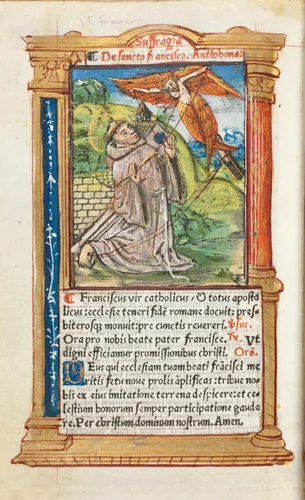 St Francis
Suffragia
¶ De sancto frācisco. Antiphona.
¶ Franciscus vir catholicus / ⁊ totus aposto
licus: ecclesie teneri fidē romane docuit: pres⸗
biterosq; monuit: pre cunctis reuereri. ℣sus.
Ora pro nobis beate pater francisce. ℟. Vt
digni efficiamur promissionibus christi. Orō.
DEus qui ecclesiam tuam beati frācisci me
ritis fetu noue prolis āplificas: tribue no⸗
bis ex eius imitatione terrena despicere: et ce⸗
lestium bonorum semper participatione gaude
re. Per christum dominum nostrum. Amen.